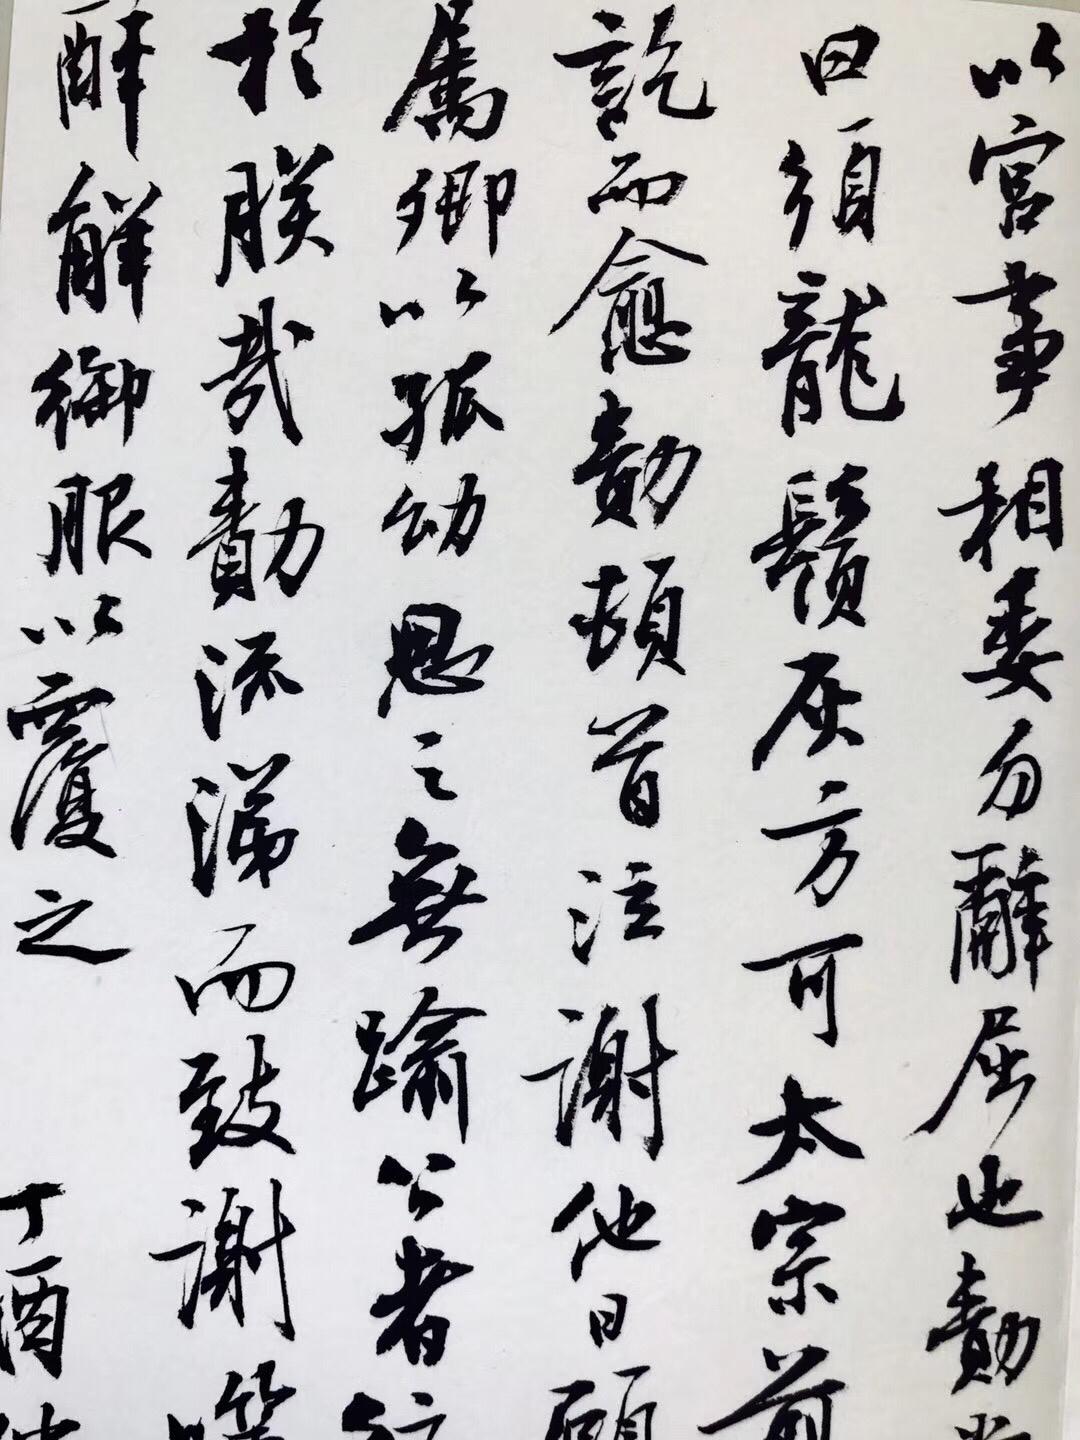 以宫事相委勿辭屈也勣
曰須龍鬚灰方可太宗剪
訖而愈勣頓首泣謝他日顧
屬卿以孤幼思之無踰公者往
於朕哉勣流涕而致謝噬
醉解御服以覆之
丁酉